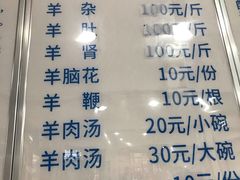 羊 杂 100元/斤
羊 肚 100元/斤
羊 肾 100元/斤
羊脑花 10元/份
羊 鞭 10元/根
羊肉汤 20元/小碗
羊肉汤 30元/大碗
元/份